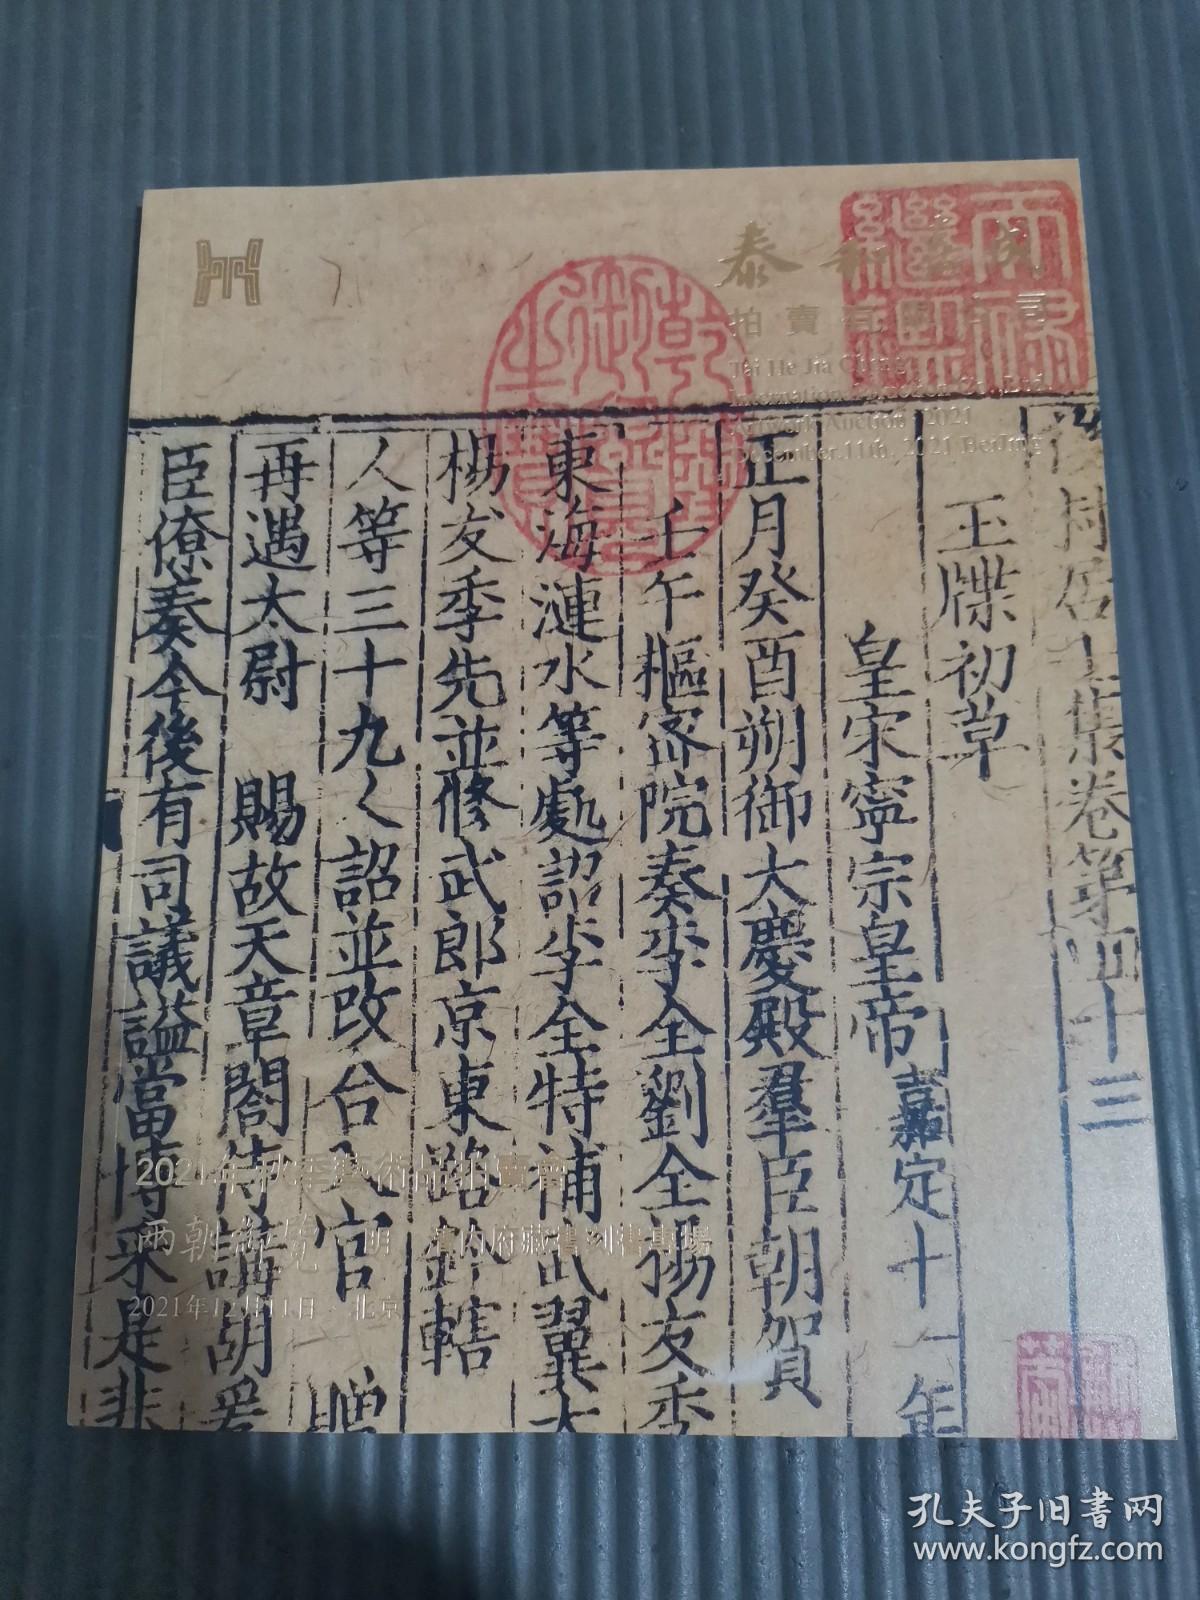 泰和嘉成
拍賣有限公司
Tai He Jia Cheng
International Auction Co., Ltd
Artwork Auction 2021
December.11th, 2021 BeiJing
居士集卷第四十三
玉牒初草
皇宋寧宗皇帝嘉定十一年
正月癸酉朔御大慶殿羣臣朝賀
壬午樞密院奏李全劉全楊友季
東海漣水等處詔李全特補武翼大
楊友季先並修武郎京東路鈐轄
人等三十九人詔並改合入官 贈
再遇太尉 賜故天章閣待講胡爰
臣僚奏今後有司議謚當博采是非
2021年秋季藝術品拍賣會
兩朝御覽 明 清內府藏書刻書專場
2021年12月11日 · 北京
孔夫子旧书网
www.kongfz.com